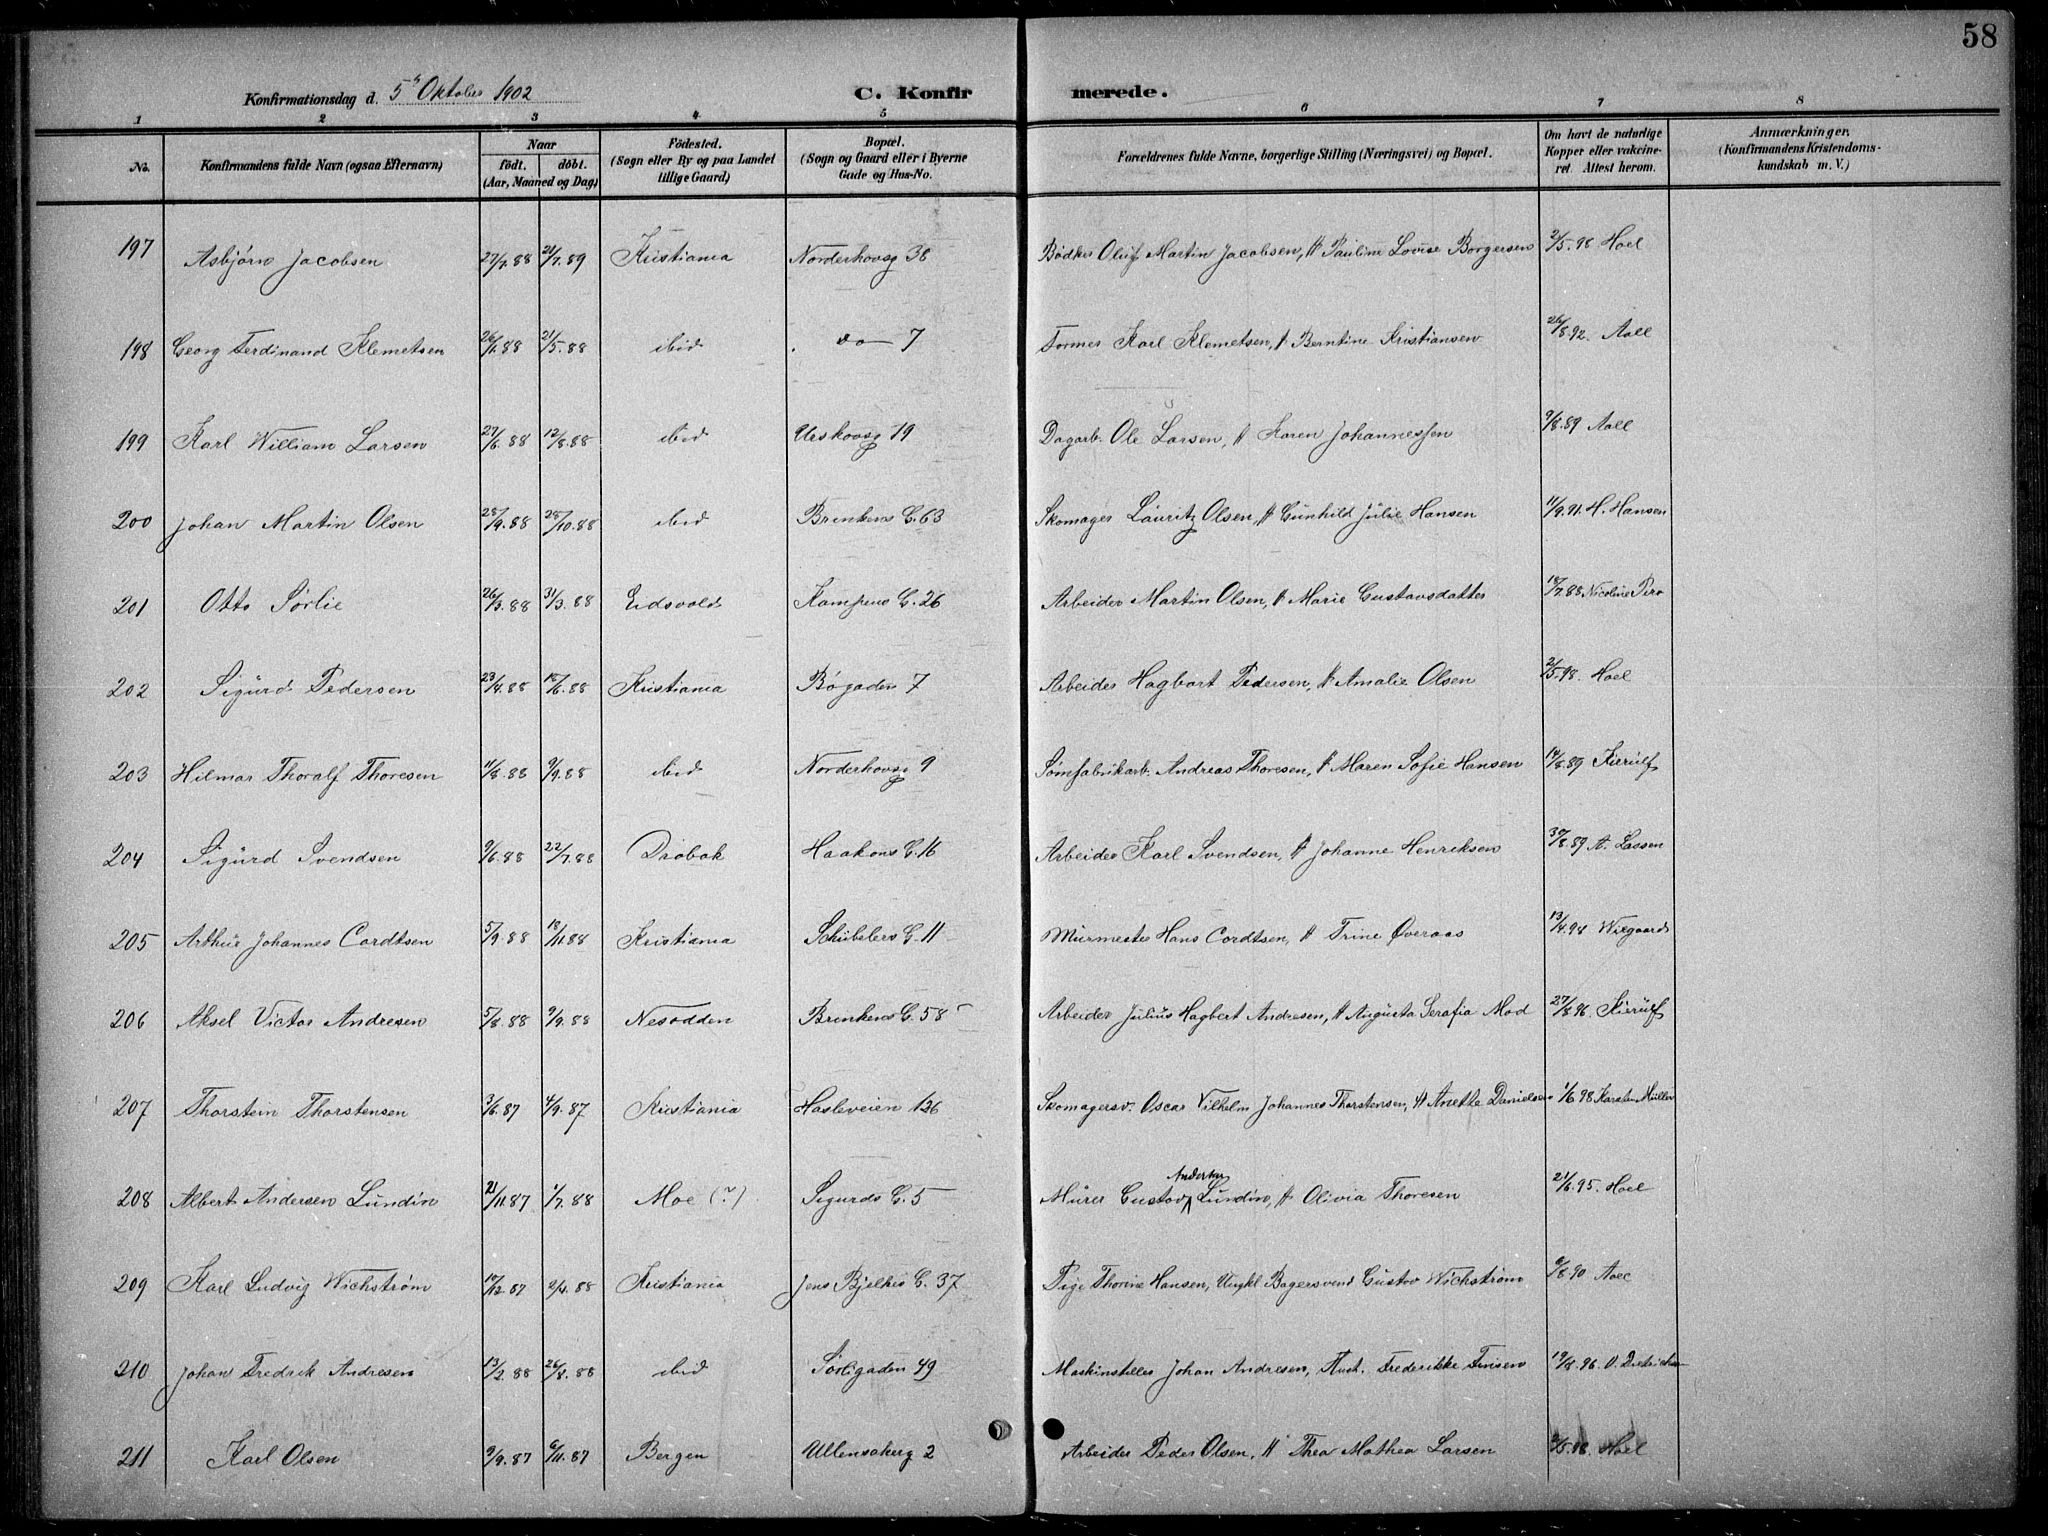 58
Konfirmationsdag d. 5 Oktober 1902 C. Konfirmerede.
1 2 3 4 5 6 7 8
No. Konfirmandens fulde Navn (ogsaa Efternavn) Naar födt. döbt. (Aar, Maaned og Dag) Födested. (Sogn eller By og paa Landet tillige Gaard) Bopæl. (Sogn og Gaard eller i Byerne Gade og Hus-No. Forældrenes fulde Navne, borgerlige Stilling (Næringsvei) og Bopæl. Om havt de naturlige Kopper eller vakcineret Attest herom. Anmærkninger. (Konfirmandens Kristendomskundskab m. V.)
197 Asbjørn Jacobsen 27/7.88 21/7.89 Kristiania Norderhovsg 38 Bødker Oluf Martin Jacobsen, H Pauline Lovise Borgersen 2/5.98 Hoel
198 Georg Ferdinand Klemetsen 26/1.88 21/5.88 ibid do 7 Former Karl Klemetsen, H Berntine Kristiansen 26/8.92. Aall
199 Karl William Larsen 27/6.88 12/8.88 ibid Urskovsg 19 Dagarb. Ole Larsen, H Karen Johannessen 9/8.89 Aall
200 Johan Martin Olsen 28/9.88 28/10.88 ibid Brinkens G. 63 Skomager Lauritz Olsen, H Gunhild Julie Hansen 11/9.91. H. Hansen
201 Otto Sørlie 26/3.88 31/3.88 Eidsvold Kampens G. 26 Arbeider Martin Olsen, H Marie Gustavsdatter 18/7.88 Nicoline Piro
202 Sigurd Pedersen 23/4.88 18/6.88 Kristiania Bøgaden 7 Arbeider Hagbart Pedersen, H Amalie Olsen 2/5.98. Hoel
203 Hilmar Thoralf Thoresen 11/8.88 9/9.88 ibid Norderhovsg 9 Sømfabrikarb. Andreas Thoresen, H Maren Sofie Hansen 14/8.89 Kierulf
204 Sigurd Svendsen 9/6.88 22/7.88 Drøbak Haakons G. 16 Arbeider Karl Svendsen, H Johanne Henriksen 30/8.89 A. Lassen
205 Arthur Johannes Cordtsen 5/9.88 18/11.88 Kristiania Schübelers G. 11 Murmester Hans Cordtsen, H Trine Øveraas 13/4.94 Wiegaard
206 Aksel Victor Andresen 5/8.88 9/9.88 Nesodden Brinkens G. 58 Arbeider Julius Hagbert Andresen, H Augusta Serafia Mod 27/8.96. Kierulf
207 Thorstein Thorstensen 3/6.87 4/9.87 Kristiania Hasleveien 136 Skomagersv. Oscar Vilhelm Johannes Thorstensen, H Anette Danielsen 1/6 98 Karsten Müller
208 Albert Andersen Lundin 21/11.87 1/7.88 Moe (?) Sigurds G. 5 Murer Gustav Andersen Lundin, H Olivia Thoresen 21/6.95. Hoel
209 Karl Ludvig Wichstrøm 19/12.87 2/4.88 Kristiania Jens Bjelkes G. 37 Pige Thorine Hansen, Ungkl Bagersvend Gustav Wichstrøm 8/8.90
210 Johan Fredrik Andresen 13/2.88 26/8.88 ibid Sørligaden 49 Maskinsteller Johan Andresen, Hust. Frederikke Finsen 19/8.96. O. Dietrichson
211 Karl Olsen 9/9.87 6/11.87 Bergen Ullensakerg 2 Arbeider Peder Olsen, H Thea Mathea Larsen 2/5.98 Hoel